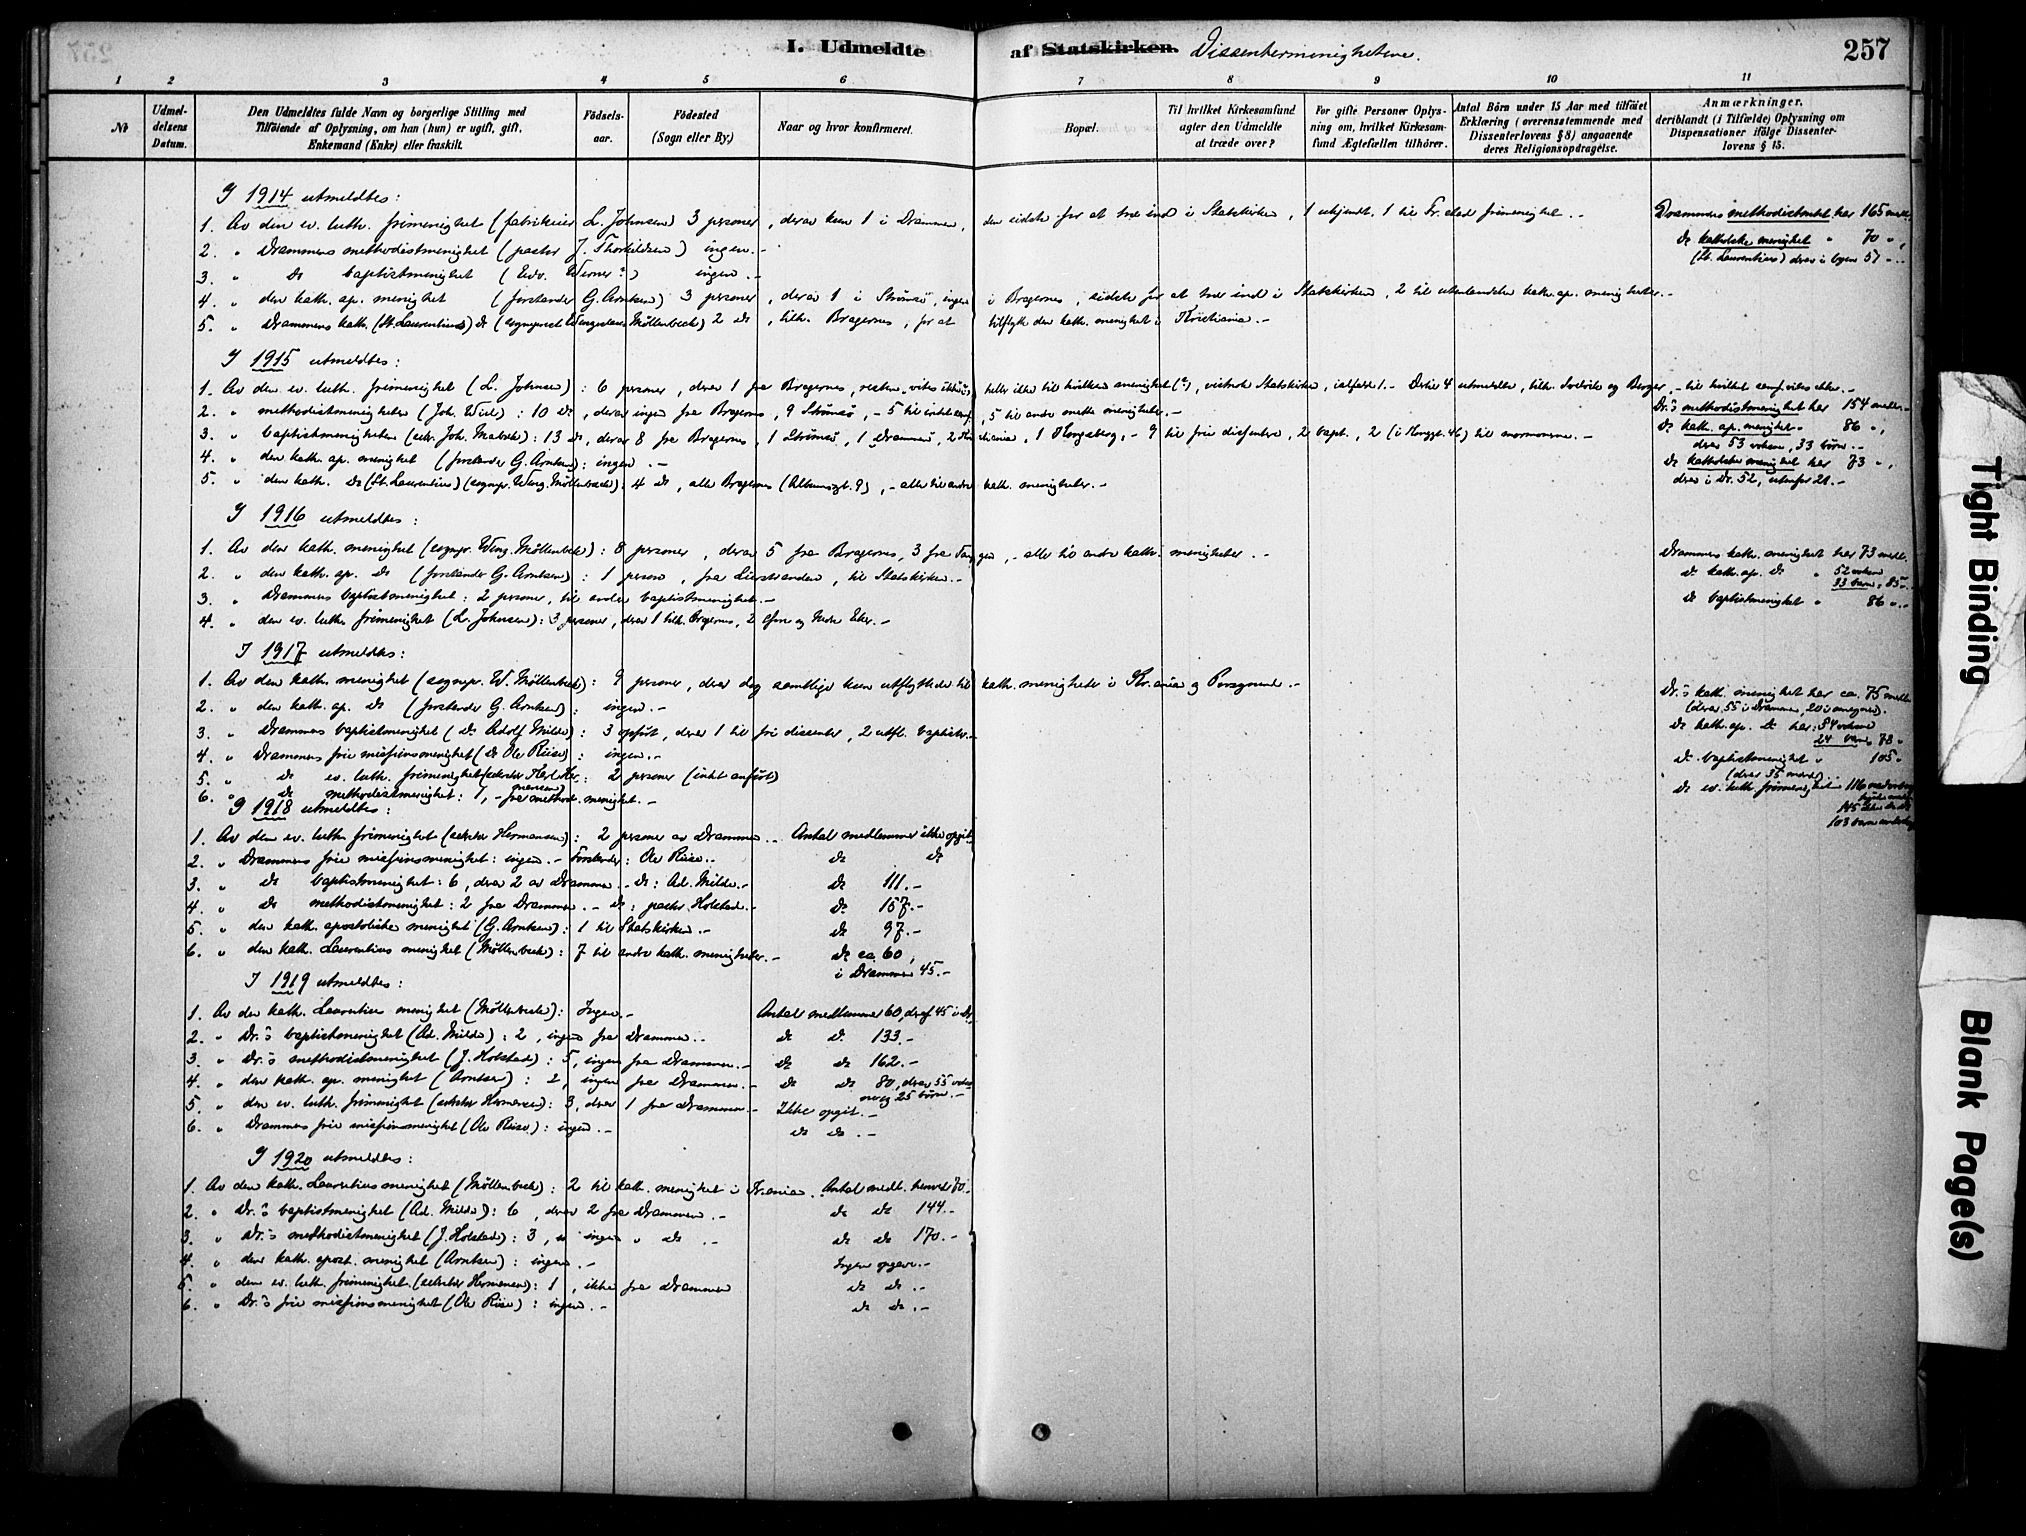 257
I. Udmeldte af Statskirken. Dissentermenighetene.
1 2 3 4 5 6 7 8 9 10 11
No
Udmeldelsens Datum.
Den Udmeldtes fulde Navn og borgerlige Stilling med Tilföiende af Oplysning, om han (hun) er ugift, gift, Enkemand (Enke) eller fraskilt.
Födselsaar.
Födested (Sogn eller By.)
Naar og hvor konfirmeret.
Bopæl.
Til hvilket Kirkesamfund agter den Udmeldte at træde over?
For gifte Personer Oplysning om, hvilket Kirkesamfund Ægtefællen tilhörer.
Antal Börn under 15 Aar med tilföiet Erklæring (overensstemmende med Dissenterlovens § 8) angaaende deres Religionsopdragelse.
Anmærkninger, deriblandt (i Tilfælde) Oplysning om Dispensationer ifölge Dissenterlovens § 15.
I 1914 utmeldtes:
1. Av den ev. luth. frimenighet (fabrikeier L. Johnsen) 3 personer, derav kun 1 i Drammen, den sidste for at træ ind i Statskirken, 1 ukjendt, 1 til Fr.stad frimenighet.-
2. " Drammens methodistmenighet (pastor J. Thorkildsen) ingen.-
3. " do baptistmenighet (Edv. Werner?) ingen.-
4. " den kath. ap. menighet (forstander G. Arntsen) 3 personer, derav 1 i Strømsø, ingen i Bragernes, sidste for at træ ind i Statskirken, 2 til utenlandske kath. ap. menigheter.-
5. " Drammens kath. (St. Laurentius) do (sogneprest Wenzeslaus Møllenbeck) 2 do, tilh. Bragernes, for at tilflytte den kath. menighet i Kristiania.-
Drammens methodistmht. har 165 medl.
do katholske menighet " 70 ",
(St. Laurentius) derav i byen 57 "..
I 1915 utmeldtes:
1. Av den ev. luth. frimenighet (L. Johnsen): 6 personer, derav 1 fra Bragernes, resten vites ikke, heller ikke til hvilken menighet (?), vistnok Statskirken, ialfald 1.- Dertil 4 utmeldte, tilh. Svelvik og Berger,- til hvilket samf. vites ikke.-
2. " methodistmenigheten (Joh. Wiel): 10 do, derav ingen fra Bragernes, 9 Strømsø,- 5 til intet samf., 5 til andre meth. menigheter.-
3. " baptistmenigheten (sekr. Joh. ): 13 do, derav 8 fra Bragernes, 1 Strømsø, 1 Drammen, 2 Kristiania, 1 Kongsberg,- 9 til frie dissentere, 2 bapt., 2 (i Kongsgt. 46) til mormonerne.-
4. " den kath. ap. menighet (forstander G. Arntsen): ingen.-
5. " den kath. do (St. Laurentius) (sognepr. Wenz. Møllenbeck): 4 do, alle Bragernes (Albumsgt. 9),- alle til andre kath. menigheter.-
Dr.s methodistmenighet har 154 medl.-
do kath. ap. menighet " 86 ",
derav 53 voksne, 33 børn.-
do katholske menighet har 73 ",
derav i Dr. 52, utenfor 21.-
I 1916 utmeldtes:
1. Av den kath. menighet (sognepr. Wenz. Møllenbeck): 8 personer, derav 5 fra Bragernes, 3 fra Tangen,- alle til andre kath. menigheter.-
2. " den kath. ap. do (forstander G. Arntsen): 1 person, fra Lierstranden, til Statskirken.-
3. " Drammens baptistmenighet: 2 personer, til anden baptistmenighet.-
4. " den ev. luth. frimenighet (L. Johnsen): 3 personer, derav 1 tilh. Bragernes, 2 Øvre og Nedre Eker.-
Drammens kath. menighet har 73 medl.
do kath. ap. do " 52 voksne
33 barn, 85 "..
do baptistmenighet " 86 "..
I 1917 utmeldtes:
1. Av den kath. menighet (sognepr. W. Møllenbeck): 9 personer, derav dog samtlige kun utflyttede til kath. menigheter i Kr.ania og Porsgrund.-
2. " den kath. ap. do (forstander G. Arntsen): ingen.-
3. " Drammens baptistmenighet (do Adolf Milde): 3 opført, derav 1 til fri dissenter, 2 utfl. baptister.-
4. " Drammens frie missionsmenighet (do Ole Riise): ingen.-
5. " do ev. luth. frimenighet (eldste Karl Hermansen): 2 personer (intet anført)
6. " do methodistmenighet: 1,- fra method. menighet.-
Dr.s kath. menighet har ca. 75 medl.
(derav 55 i Drammen, 20 i omegnen).
do kath. ap. do har: 54 voksne
24 barn, 78 "
do baptistmenighet " 105 "
(derav 35 mænd).
do ev. luth. frimenighet 116
145
103 barn
I 1918 utmeldtes:
1. Av den ev. luth. frimenighet (eldste Hermansen): 2 personer av Drammen.- Antal medlemmer ikke opgit.
2. " Drammens frie missionsmenighet: ingen.- Forstander: Ole Riise.- do do
3. " do baptistmenighet: 6, derav 2 av Drammen.- do: Ad. Milde.- do 111.-
4. " do methodistmenighet: 2 fra Drammen.- do: pastor Holstad.- do 157.-
5. " den kath. apostoliske menighet (G. Arntsen): 1 til Statskirken.- do 97.-
6. " den kath. Laurentius menighet (Møllenbeck): 7 til andre kath. menigheter.- do ca. 60,
i Drammen 45.-
I 1919 utmeldtes:
1. Av den kath. Laurentius menighet (Møllenbeck): Ingen.- Antal medlemmer 60, deraf 45 i Dr.
2. " Dr.s baptistmenighet (Ad. Milde): 2, ingen fra Drammen.- do do 133.-
3. " Dr.s methodistmenighet (J. Holstad): 5, ingen fra Drammen.- do do 162.-
4. " den kath. ap. menighet (Arntsen): 2, ingen fra Drammen.- do do 80, derav 55 voksne
og 25 børn.-
5. " den ev. luth. frimenighet (eldste Hermansen): 3, derav 1 fra Drammen.- Ikke opgit.-
6. " Drammens frie missionsmenighet (Ole Riise): ingen.- do do.-
I 1920 utmeldtes:
1. Av den kath. Laurentius menighet (Møllenbeck): 2 til kath. menighet i Kr.ania. Antal medl. henved 70.
2. " Dr.s baptistmenighet (Ad. Milde): 6, derav 2 fra Drammen.- do do 144.-
3. " Dr.s methodistmenighet (J. Holstad): 3, ingen " do.- do do 170.-
4. " den kath. apost. menighet (Arntsen): ingen.- Ingen opgave.-
5. " den ev. luth. frimenighet (eldste Hermansen): 1, ikke fra Drammen do do.-
6. " Dr.s frie missionsmenighet (Ole Riise): ingen.- do do.-
Tight Binding
Blank Page(s)